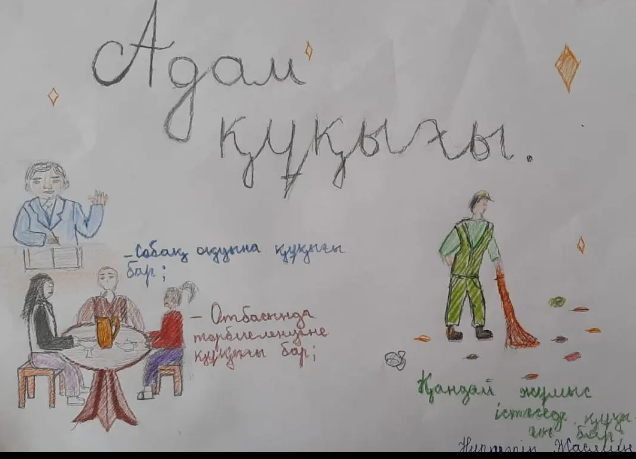 Адам
құқығы.
-Сабақ оқуына құқығы
бар;
- Отбасында
тәрбиеленуіне
құқығы бар;
Қандай жұмыс
істеседе құқы
ғы бар
Жасмин